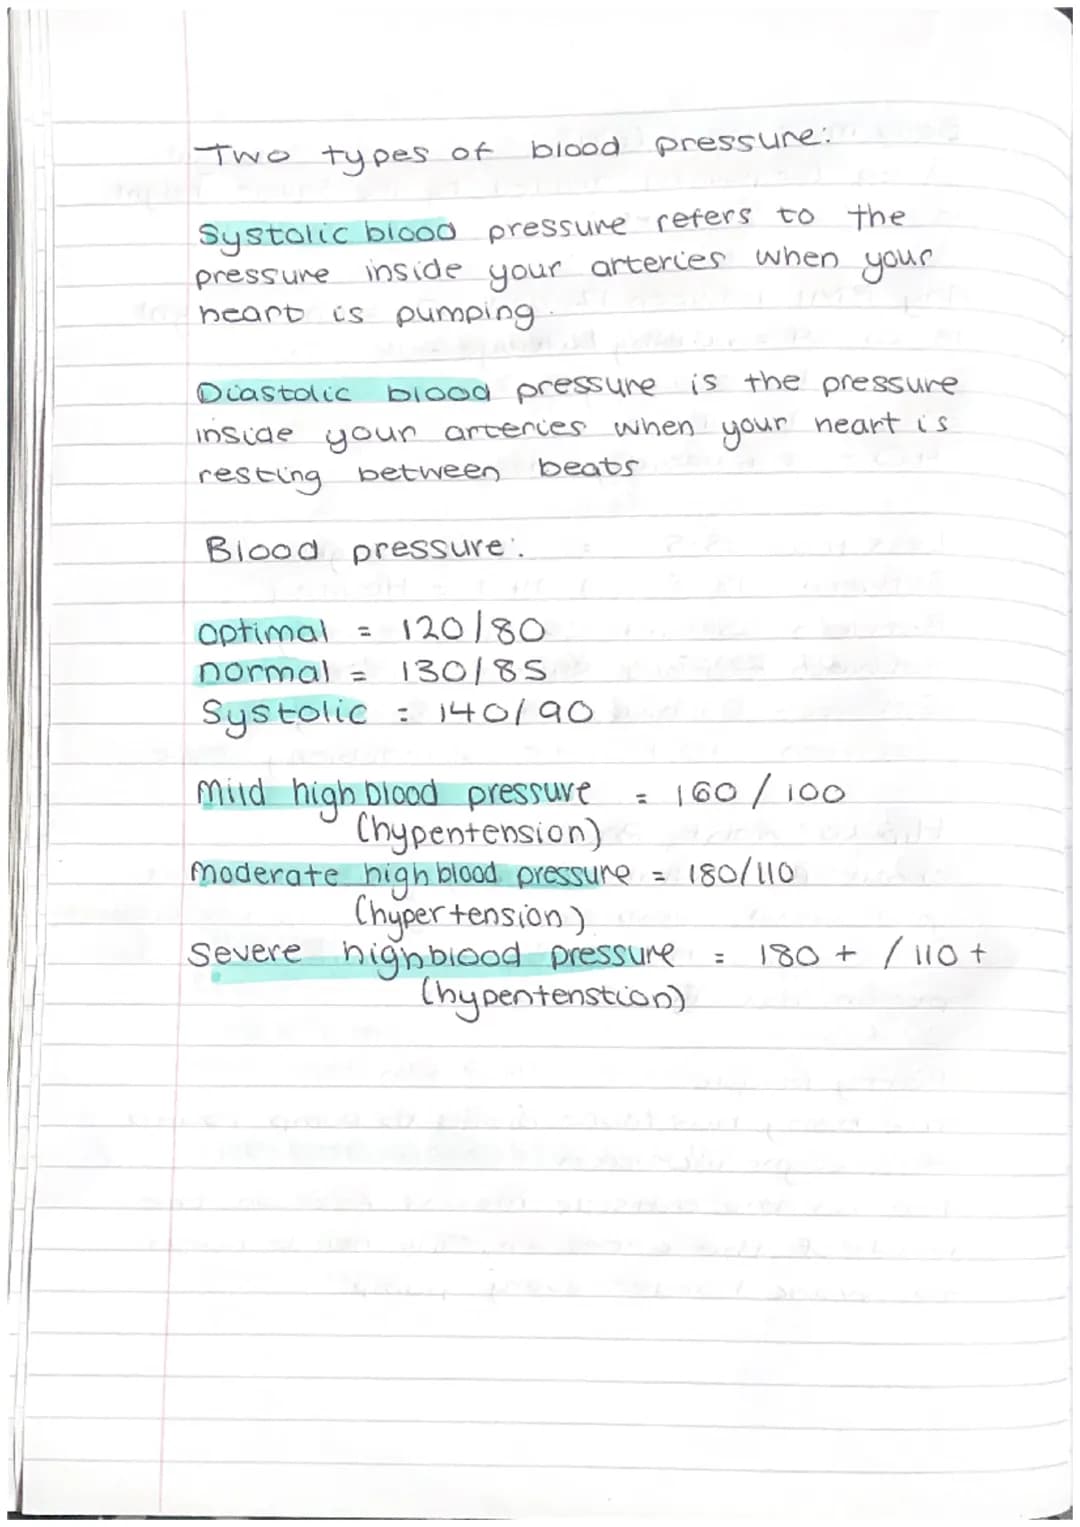 Two types of blood pressure:
Systolic blood pressure refers to the
pressure inside your arteries when your
heart is pumping.
Diastolic blood pressure is the pressure
inside your arteries when your heart is
resting between beats
Blood pressure:
Optimal = 120/80
normal = 130/85
Systolic = 140/90
Mild high blood pressure = 160/100
(hypentension)
Moderate high blood pressure = 180/110
(hypertension)
Severe high blood pressure = 180+/110+
(hypentenstion)